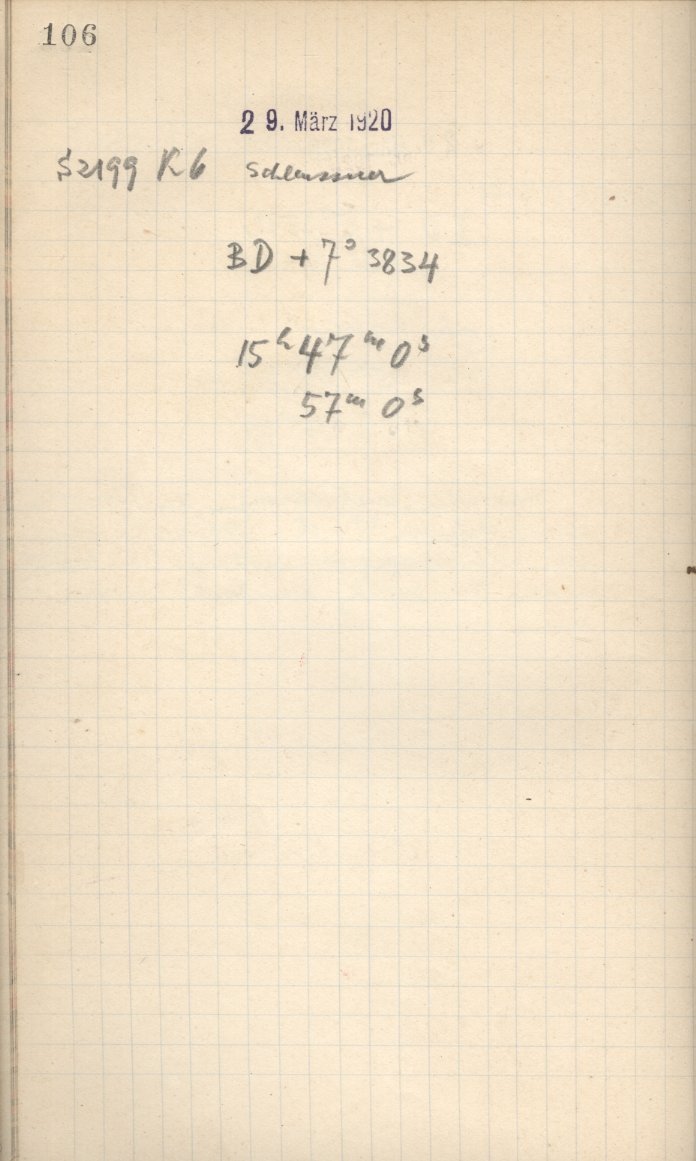 106
29. März 1920
S2199 R6 Schleussner
BD +7° 3834
15ʰ 47ᵐ 0ˢ
57ᵐ 0ˢ